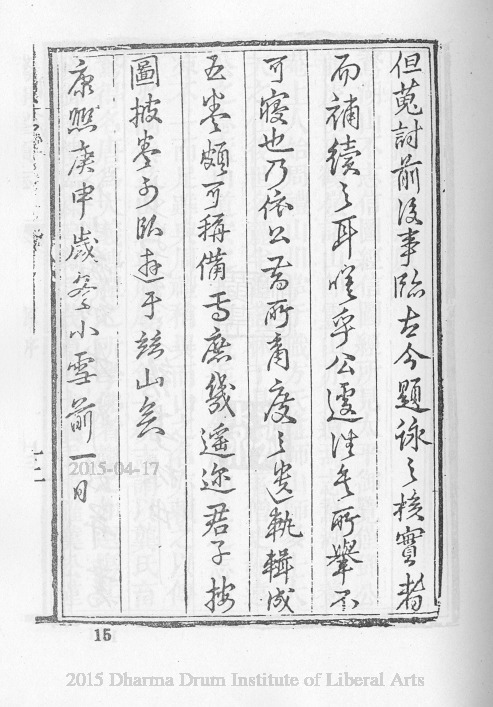 但蒐討前後事臨古今題詠之核實者
而補續之耳嗟乎公遽往矣所舉不
可寢也乃依公昔所商度之遺軌輯成
五卷頗可稱備焉庶幾遥迩君子按
圖披卷可臥遊于茲山矣
康熙庚申歲冬小雪前一日
15
2015-04-17
2015 Dharma Drum Institute of Liberal Arts